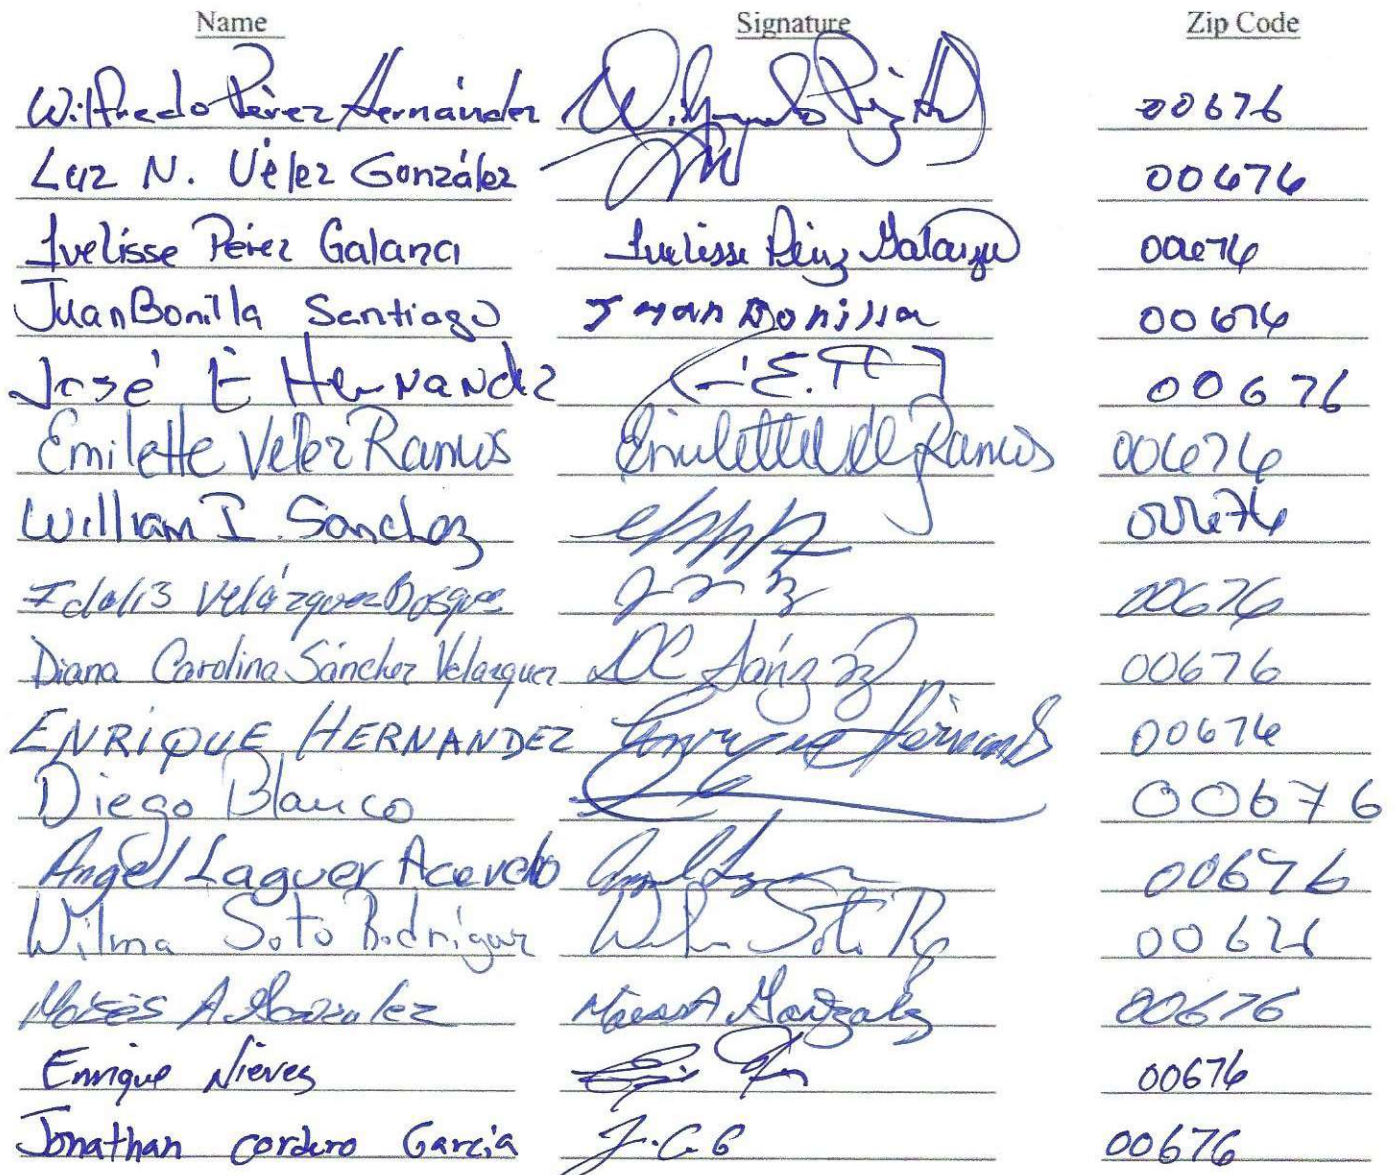 Name Signature Zip Code
Wilfredo Pérez Hernández 00676
Luz N. Vélez González 00676
Ivelisse Pérez Galarza Ivelisse Pérez Galarza 00676
Juan Bonilla Santiago Juan Bonilla 00676
José E Hernandez 00676
Emilette Velez Ramos 00676
William I. Sanchez 00676
Idalis Velázquez Bosques 00676
Diana Carolina Sánchez Velazquez DC 00676
ENRIQUE HERNANDEZ Enrique 00676
Diego Blanco 00676
Angel Laguer Acevedo 00676
Wilma Soto Rodríguez Soto 00676
Moisés A González González 00676
Enrique Nieves 00676
Jonathan Cordero García J.C.G 00676